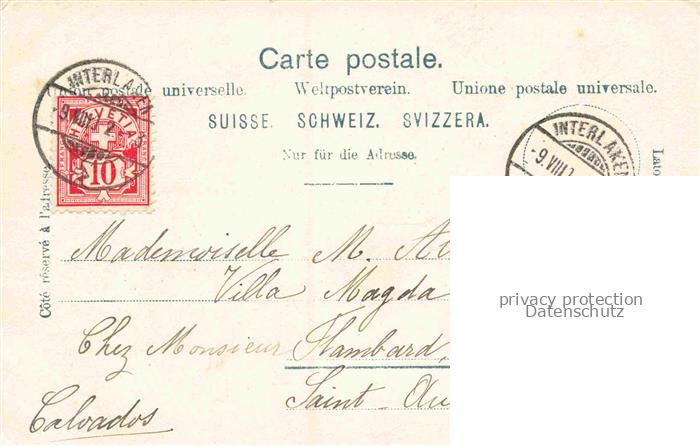 Carte postale.
Union postale universelle. Weltpostverein. Unione postale universale.
SUISSE. SCHWEIZ. SVIZZERA.
Nur für die Adresse.
Côté réservé à l'adresse.
INTERLAKEN
9.VIII
HELVETIA
10
INTERLAKEN
-9.VIII
Lato
Mademoiselle M. 
Villa Magda
Chez Monsieur Flambard,
Saint Au
Calvados
privacy protection
Datenschutz